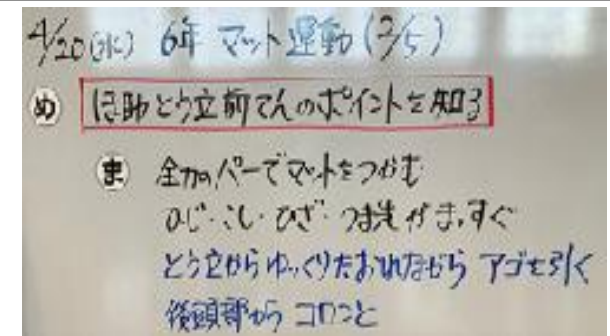 4/20(水) 6年 マット運動(2/5)
め ほ助とう立前てんのポイントを知る
ま 全力パーでマットをつかむ
ひじ・こし・ひざ・つま先がまっすぐ
とう立からゆっくりたおれながら アゴを引く
後頭部から コロンと